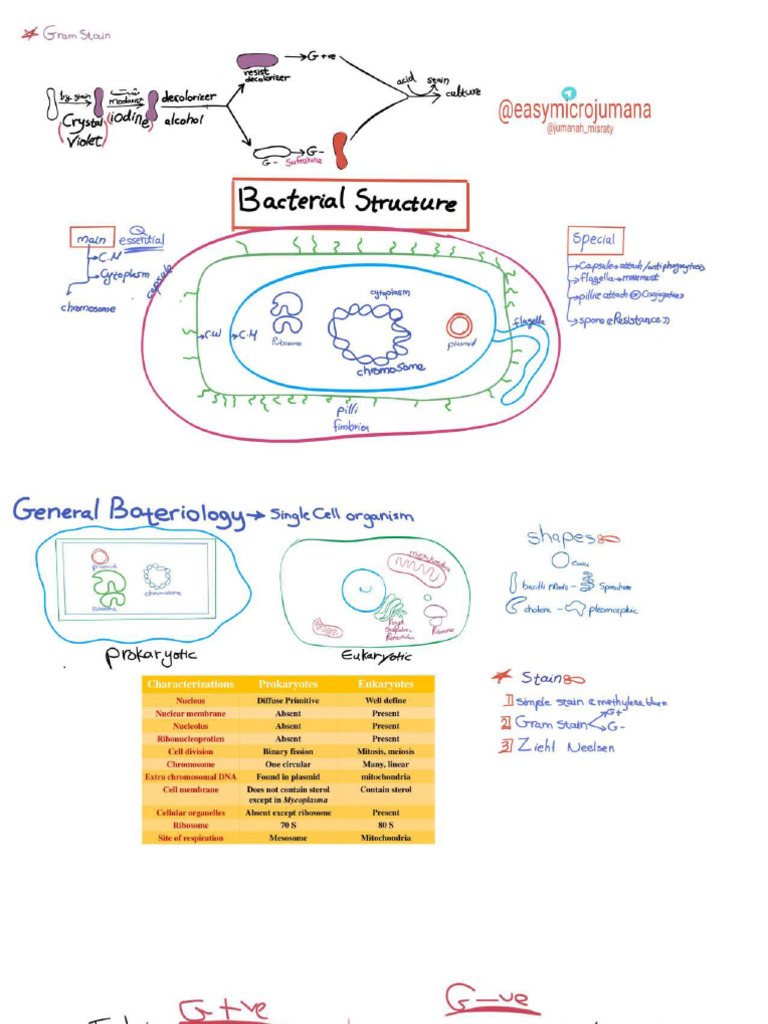 Gram Stain
G+ve
resist
decolorizer
acid
stain
culture
iodine
decolorizer
Crystal
Violet
alcohol
G-
G-
@easymicrojumana
@jumanah_misraty
Bacterial Structure
main
essential
C.M
Cytoplasm
chromosome
Special
Capsule → attach/antiphagocytosis
flagella → movement
pillie attach or Conjugation
spore «Resistance»
capsule
cytoplasm
Ribosome
plasmid
flagella
C.W
C.M
chromosome
pilli
fimbriea
General Bateriology → Single Cell organism
plasmid
chromosome
Ribosome
Prokaryotic
Eukaryotic
shapes
Cocci
bacilli Rods - Spirochete
cholera - pleomorphic
Characterizations Prokaryotes Eukaryotes
Nucleus Diffuse Primitive Well define
Nuclear membrane Absent Present
Nucleolus Absent Present
Ribonucleoprotien Absent Present
Cell division Binary fission Mitosis, meiosis
Chromosome One circular Many, linear
Extra chromosomal DNA Found in plasmid mitochondria
Cell membrane Does not contain sterol except in Mycoplasma Contain sterol
Cellular organelles Absent except ribosome Present
Ribosome 70 S 80 S
Site of respiration Mesosome Mitochondria
Stain
1 Simple stain «methylene blue»
2 Gram Stain G+ G-
3 Ziehl Neelsen
G+ve
G-ve